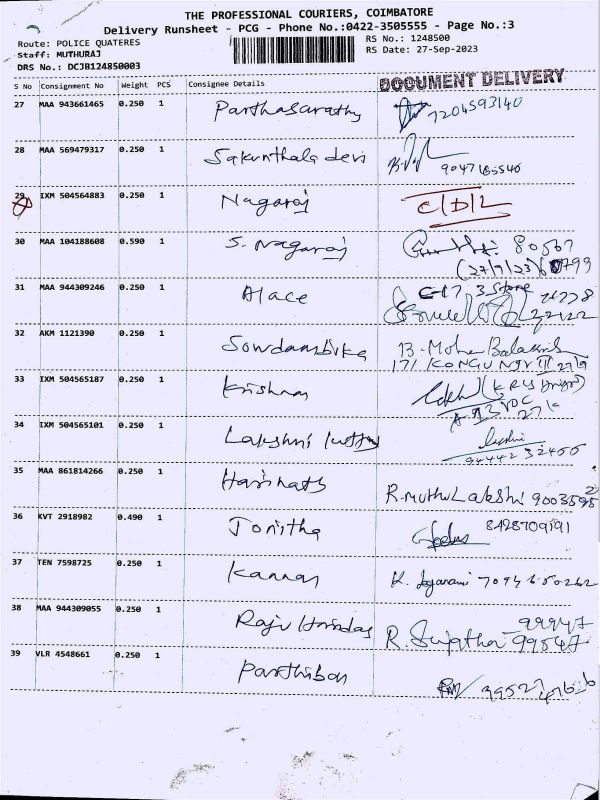 THE PROFESSIONAL COURIERS, COIMBATORE
Delivery Runsheet - PCG - Phone No.:0422-3505555 - Page No.:3
Route: POLICE QUATERES
RS No.: 1248500
Staff: MUTHURAJ
RS Date: 27-Sep-2023
DRS No.: DCJB124850003
DOCUMENT DELIVERY
S No Consignment No Weight PCS Consignee Details
27 MAA 943661465 0.250 1 Parthasarathy 7204593140
28 MAA 569479317 0.250 1 Sakunthala devi
29 IXM 504564883 0.250 1 Nagaraj C/D/L
30 MAA 104188608 0.590 1 S. Nagaraj 80567
(27/9/23)
31 MAA 944309246 0.250 1 Alace C-17 3 Store
32 AKM 1121390 0.250 1 Sowdambika B. Mohan
171 KONGU NGR
33 IXM 504565187 0.250 1 Krishnan
34 IXM 504565101 0.250 1 Lakshmi kutty
9444232455
35 MAA 861814266 0.250 1 Harinath R. muthuLakshi
36 KVT 2918982 0.490 1 Jonitha 8428709191
37 TEN 7598725 0.250 1 Kannan K.
38 MAA 944309055 0.250 1 Raju Haridas R. Sujatha
39 VLR 4548661 0.250 1 Parthiban